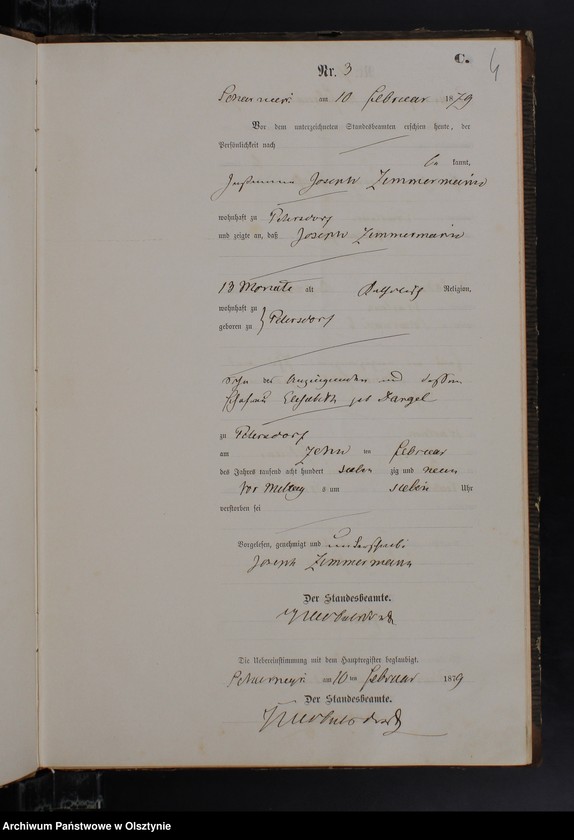 C.
4
Nr. 3
am 10 Februar 1879
Vor dem unterzeichneten Standesbeamten erschien heute, der
Persönlichkeit nach
be kannt,
Joseph Zimmermann
wohnhaft zu Petersdorf
und zeigte an, daß Joseph Zimmermann
13 Monate alt Katholisch Religion,
wohnhaft zu
geboren zu } Petersdorf
Sohn des Anzeigenden und dessen
Ehefrau Elisabeth geb Dargel
zu Petersdorf
am zehn ten Februar
des Jahres tausend acht hundert sieben zig und neun
Vor Mittag s um sieben Uhr
verstorben sei
Vorgelesen, genehmigt und unterschrieben
Joseph Zimmermann
Der Standesbeamte.
Die Uebereinstimmung mit dem Hauptregister beglaubigt.
am 10 ten Februar 1879
Der Standesbeamte.
Archiwum Państwowe w Olsztynie